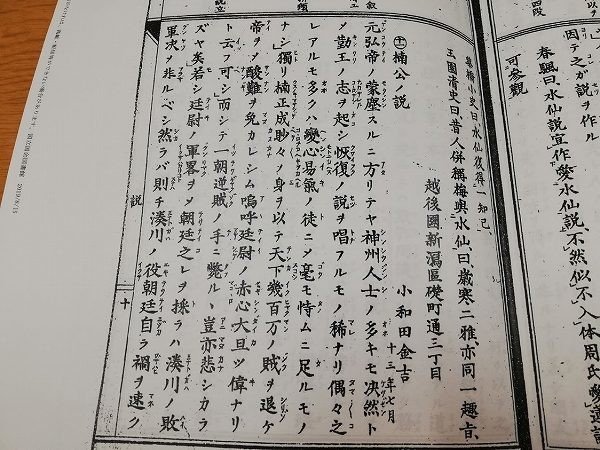 因テ之ガ説ヲ作ル
可參觀
春颿曰水仙説宜作愛水仙説、不然似不入体周氏愛蓮説
集梧小史曰水仙復得一知己、
玉圃清史曰昔人併稱梅與水仙曰歳寒二雅、亦同一趣旨、
越後國新潟區礎町通三丁目
小和田金吉
十三年七月
楠公ノ説
元弘帝ノ蒙塵スルニ方リテヤ神州人士ノ多キモ决然ト
メ勤王ノ志ヲ起シ恢復ノ説ヲ唱フルモノ稀ナリ偶々之
レアルモ多クハ變心易節ノ徒ニメ毫モ恃ムニ足ルモノ
ナシ獨リ楠正成眇々ノ身ヲ以テ天下幾百万ノ賊ヲ退ケ
帝ヲメ酸難ヲ免カレシム嗚呼廷尉ノ赤心大且ツ偉ナリ
ト云フ可シ而シテ一朝逆賊ノ手ニ斃ル豈亦悲シカラ
ズヤ矣若シ廷尉ノ軍畧ヲメ朝廷之レヲ採ラハ湊川ノ敗
軍决ヲ非ルベシ然ラバ則チ湊川ノ役朝廷自ラ禍ヲ速ク
説
十
2019/8/15